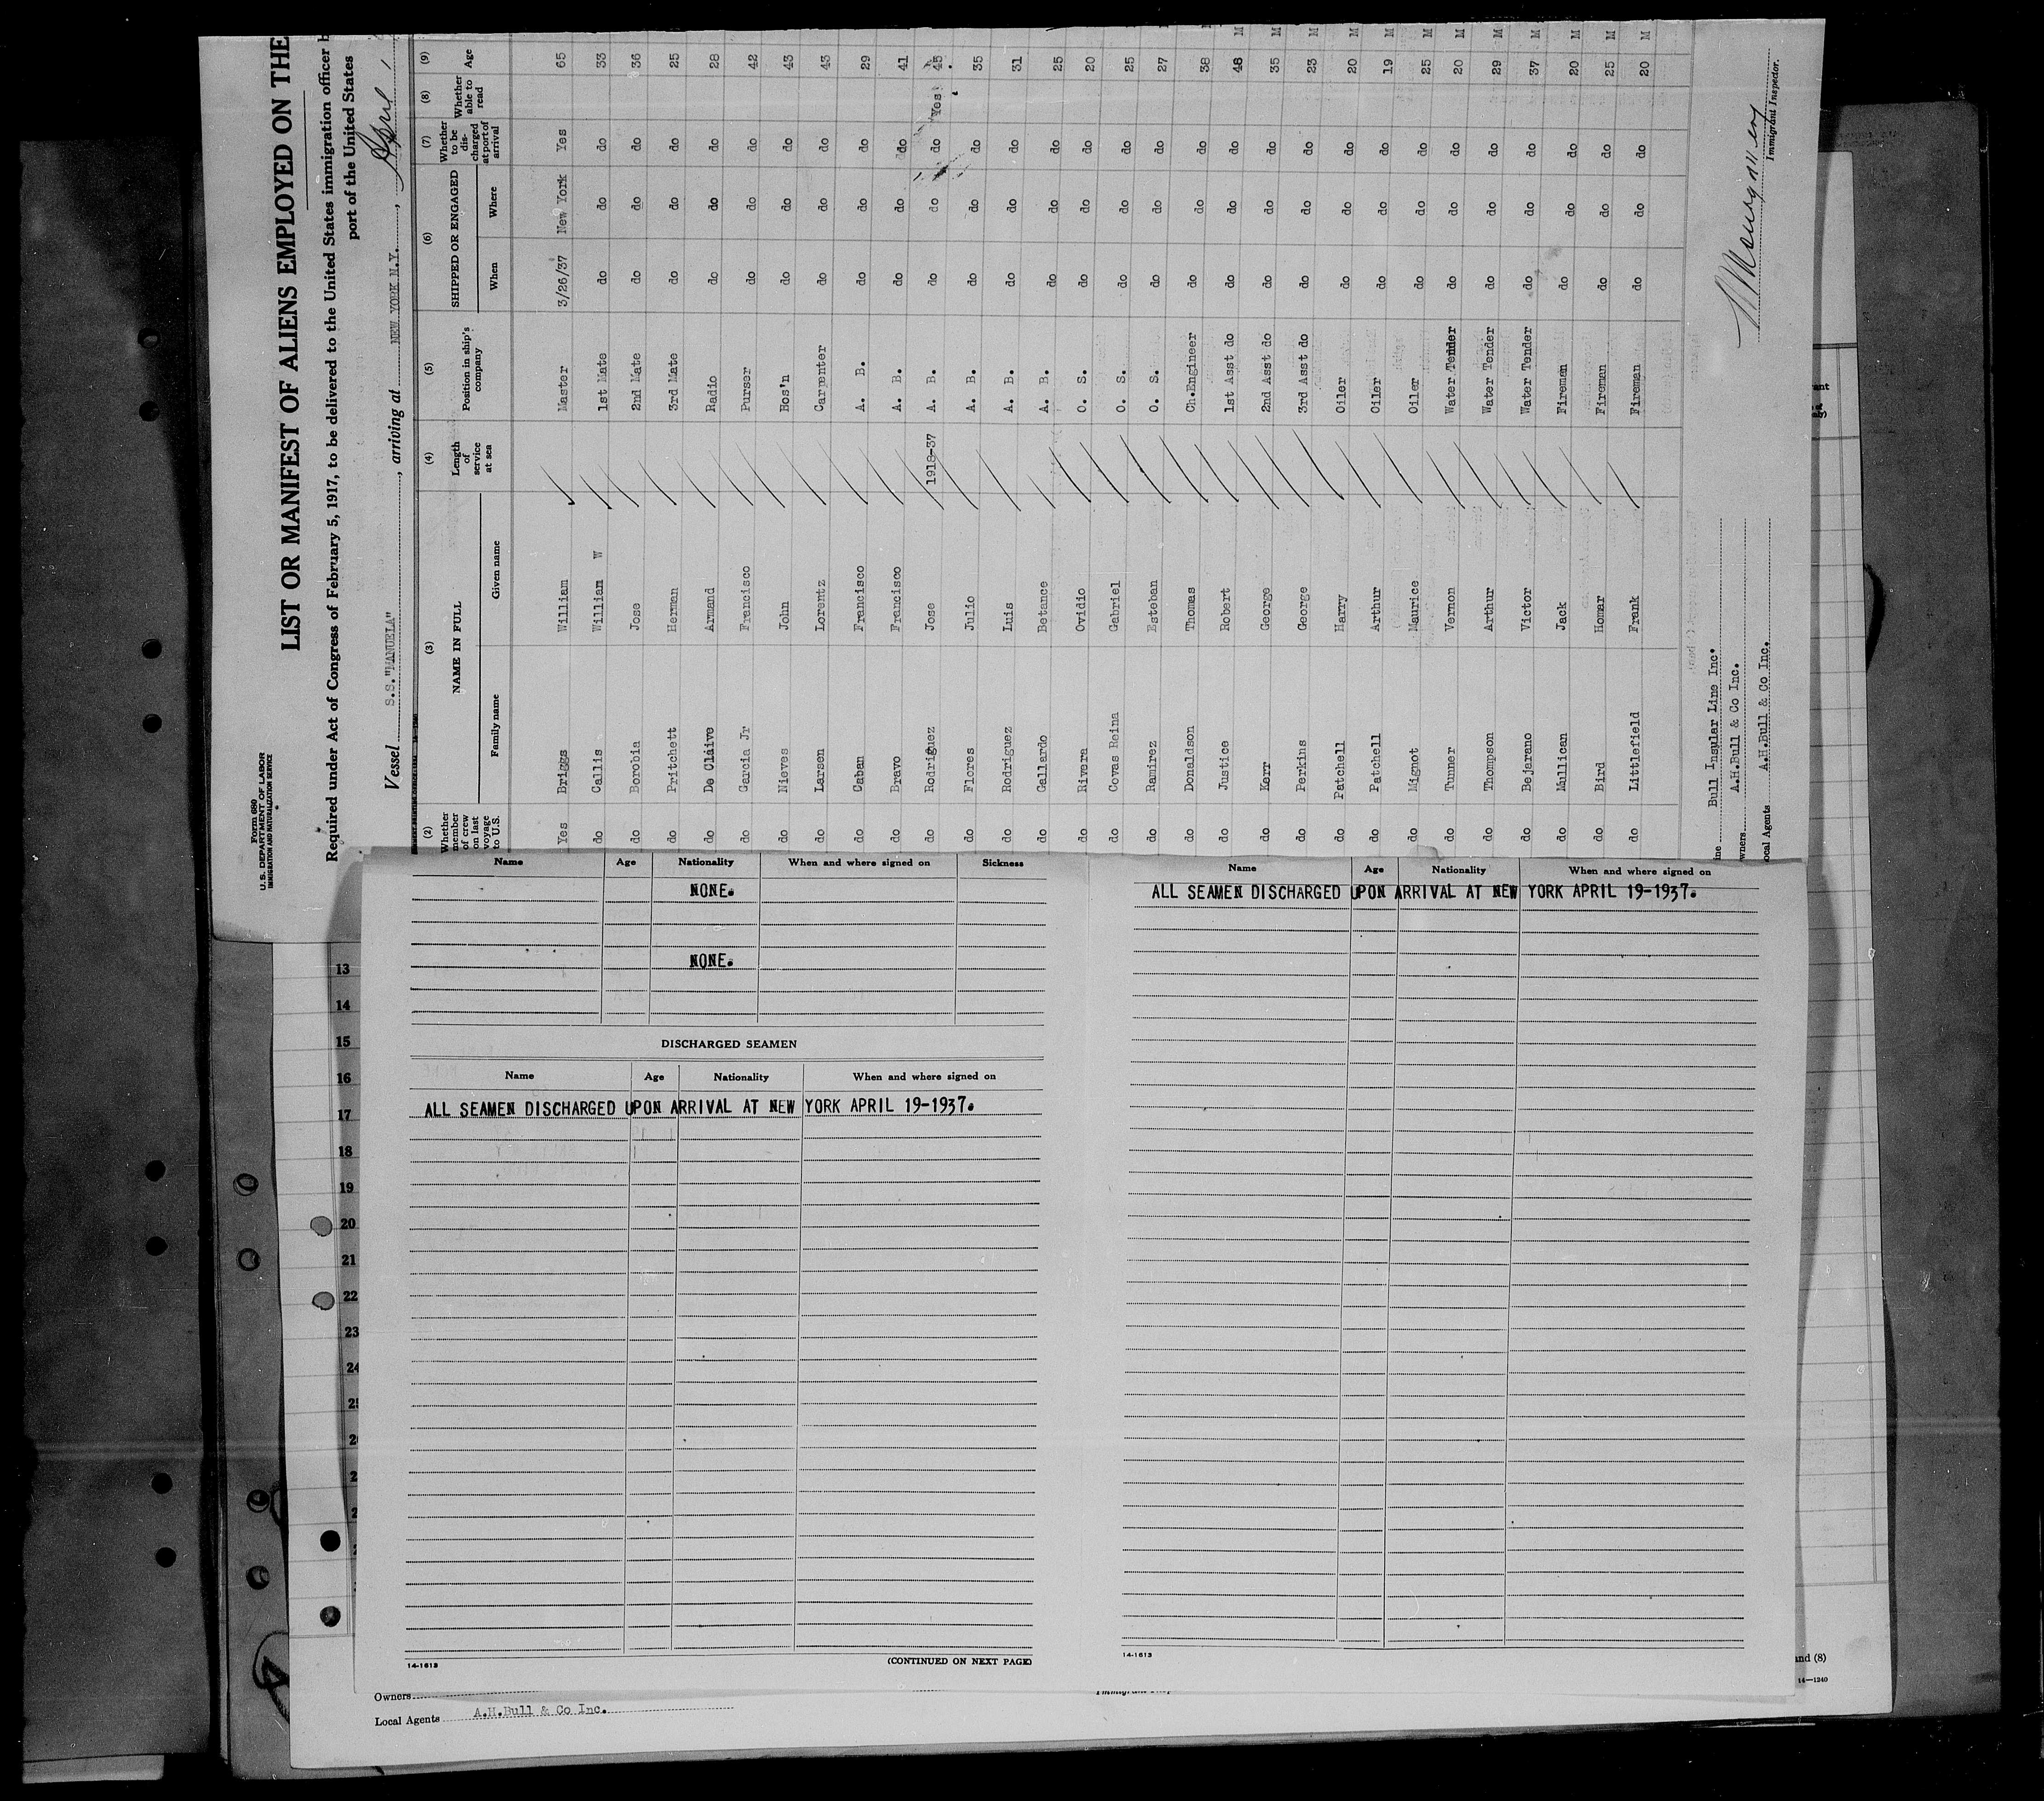 Form 680
U.S. DEPARTMENT OF LABOR
IMMIGRATION AND NATURALIZATION SERVICE
LIST OR MANIFEST OF ALIENS EMPLOYED ON THE
Required under Act of Congress of February 5, 1917, to be delivered to the United States immigration officer
port of the United States
Vessel S.S."MANUELA", arriving at NEW YORK N.Y., April
(2) (3) (4) (5) (6) (7) (8) (9)
Whether member of crew on last voyage to U.S. NAME IN FULL Family name Given name Length of service at sea Position in ship's company SHIPPED OR ENGAGED When Where Whether to be discharged at port of arrival Whether able to read Age
Yes Briggs William Master 3/26/37 New York Yes 65
do Callis William W 1st Mate do do do 33
do Borobia Jose 2nd Mate do do do 36
do Pritchett Herman 3rd Mate do do do 25
do De Claive Armand Radio do do do 28
do Garcia Jr Francisco Purser do do do 42
do Nieves John Bos'n do do do 43
do Larsen Lorentz Carpenter do do do 43
do Caban Francisco A. B. do do do 29
do Bravo Francisco A. B. do do do 41
do Rodriguez Jose 1918-37 A. B. do do do Yes 45
do Flores Julio A. B. do do do 35
do Rodriguez Luis A. B. do do do 31
do Gallardo Betance A. B. do do do 25
do Rivera Ovidio O. S. do do do 20
do Covas Reina Gabriel O. S. do do do 25
do Ramirez Esteban O. S. do do do 27
do Donaldson Thomas Ch.Engineer do do do 38
do Justice Robert 1st Asst do do do do 48 M
do Kerr George 2nd Asst do do do do 35 M
do Perkins George 3rd Asst do do do do 23 M
do Patchell Harry Oiler do do do 20 M
do Patchell Arthur Oiler do do do 19 M
do Mignot Maurice Oiler do do do 25 M
do Tunner Vernon Water Tender do do do 20 M
do Thompson Arthur Water Tender do do do 29 M
do Bejarano Victor Water Tender do do do 37 M
do Mullican Jack Fireman do do do 20 M
do Bird Homar Fireman do do do 25 M
do Littlefield Frank Fireman do do do 20 M
ine Bull Insular Line Inc.
wners A.H.Bull & Co Inc.
ocal Agents A.H.Bull & Co Inc.
Immigrant Inspector.
Name Age Nationality When and where signed on Sickness
NONE.
NONE.
DISCHARGED SEAMEN
Name Age Nationality When and where signed on
ALL SEAMEN DISCHARGED UPON ARRIVAL AT NEW YORK APRIL 19-1937.
14-1613
(CONTINUED ON NEXT PAGE)
Name Age Nationality When and where signed on
ALL SEAMEN DISCHARGED UPON ARRIVAL AT NEW YORK APRIL 19-1937.
14-1613
13
14
15
16
17
18
19
20
21
22
23
24
Owners
Local Agents A.H.Bull & Co Inc.
and (8)
14-1240